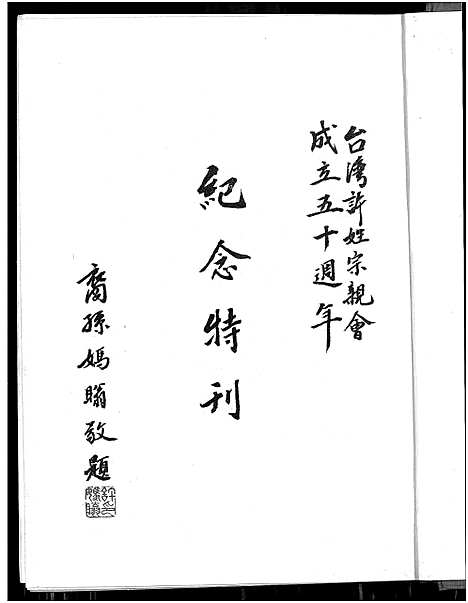 台灣許姓宗親會
成立五十週年
紀念特刊
裔孫媽瑙敬題